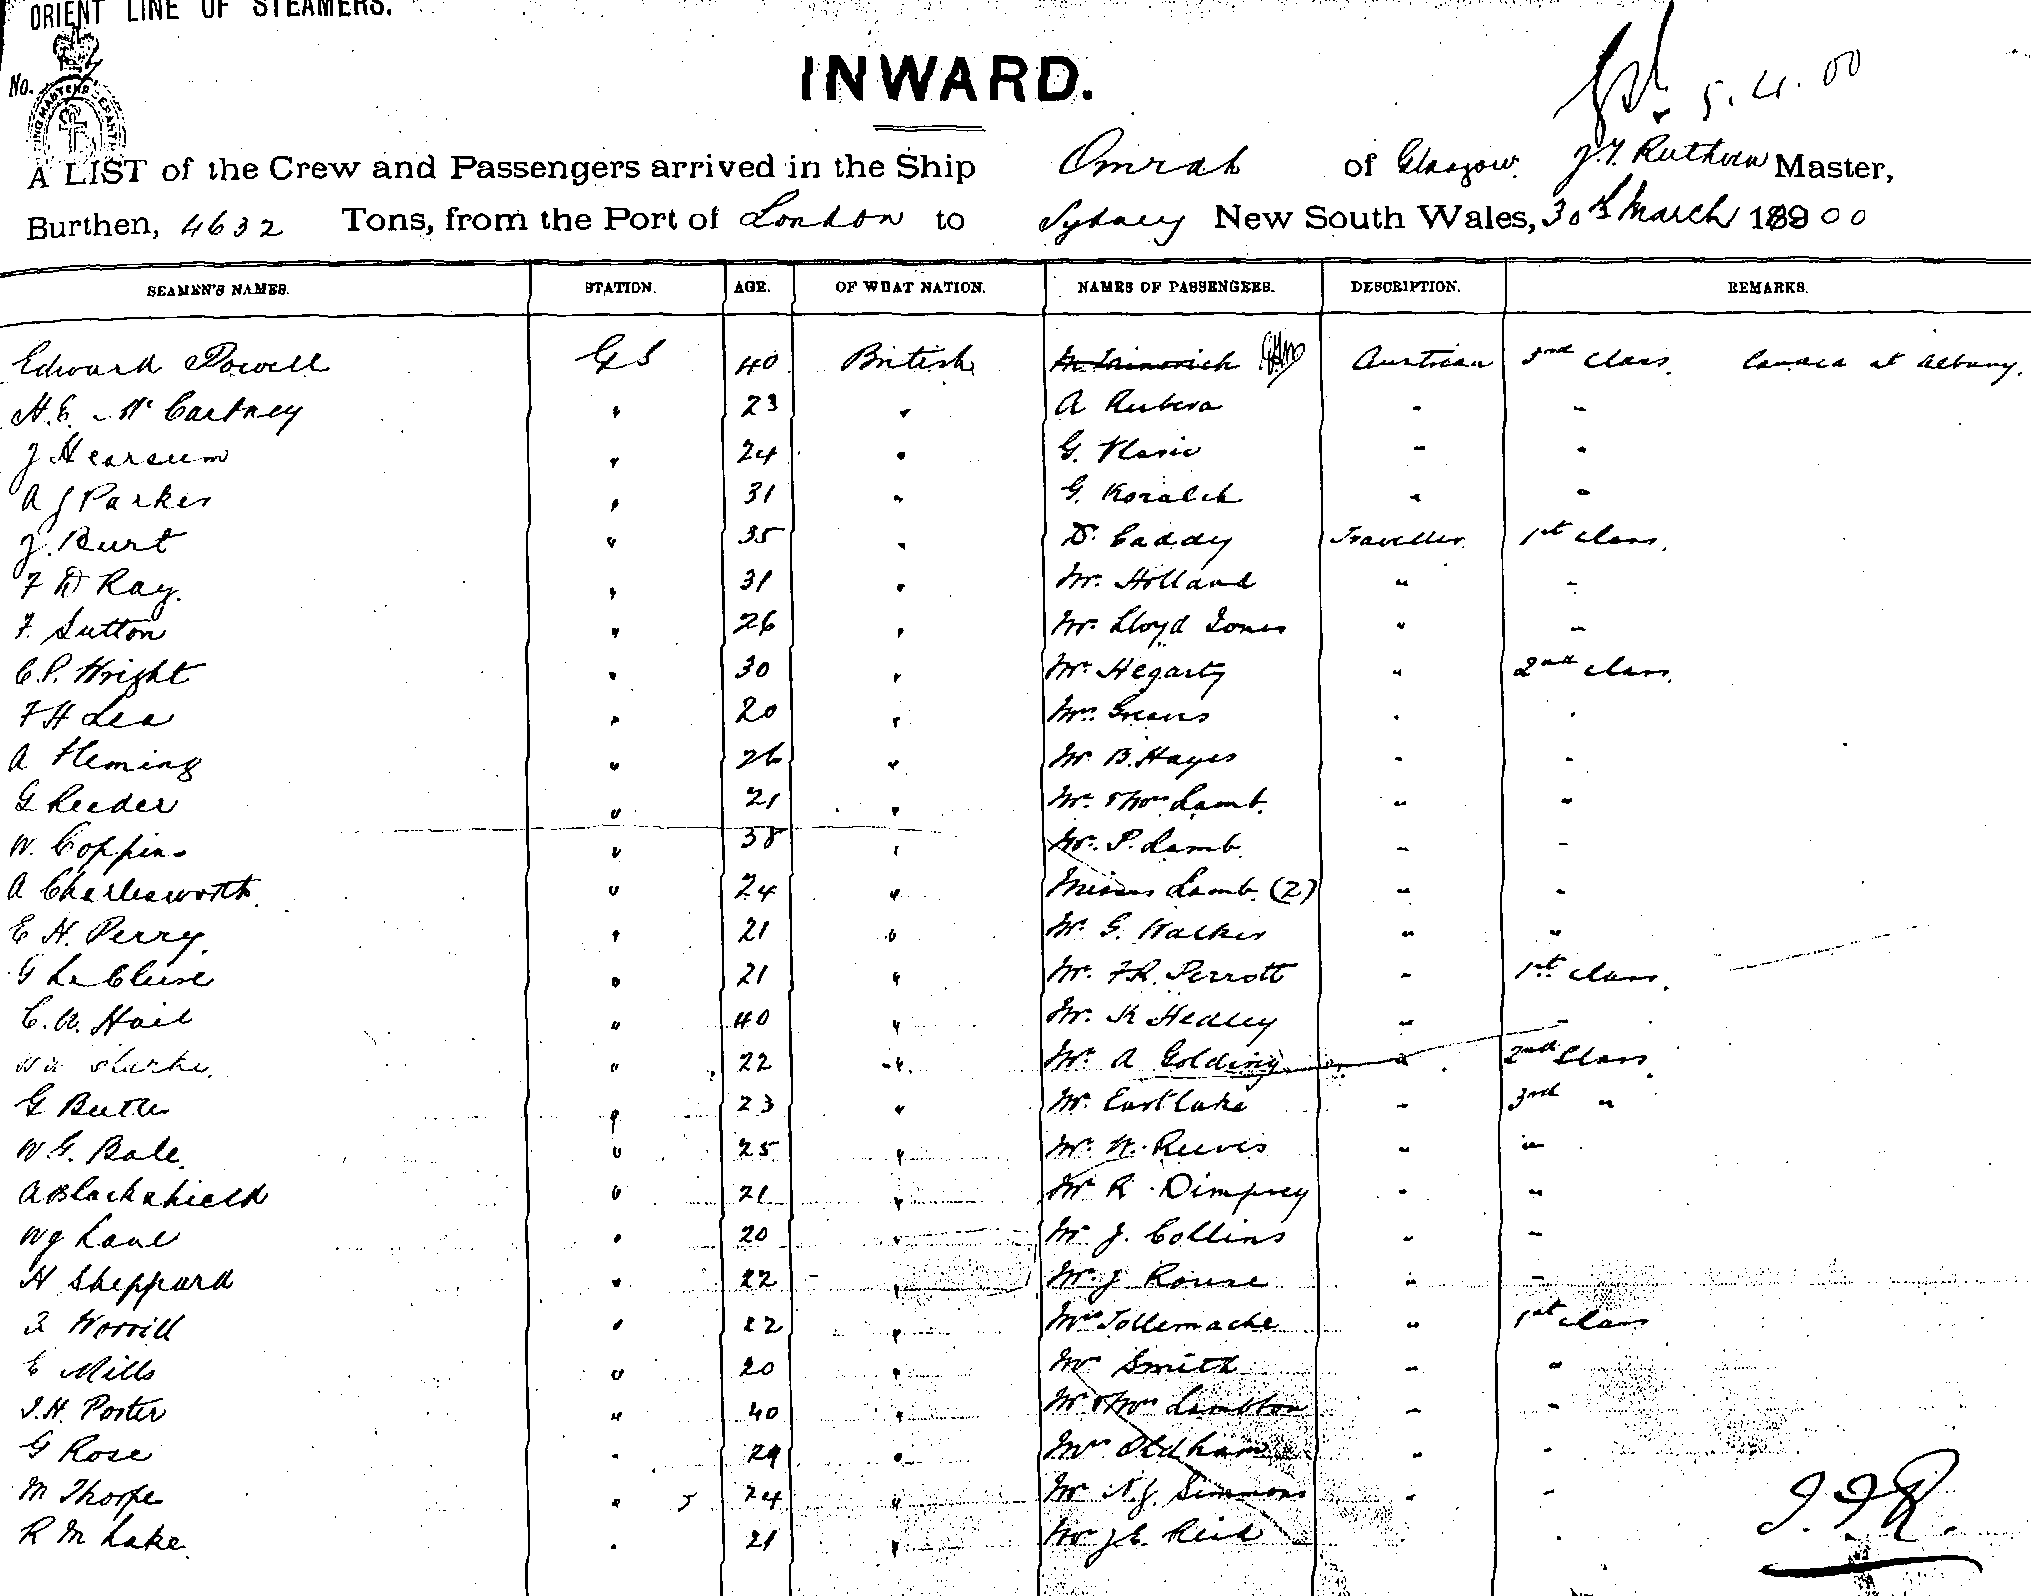 ORIENT LINE OF STEAMERS.
No.
INWARD.
5.4.00
A LIST of the Crew and Passengers arrived in the Ship Omrah of Glasgow. J.F. Ruthven Master,
Burthen, 4632 Tons, from the Port of London to Sydney New South Wales, 30th March 1900
SEAMEN'S NAMES. STATION. AGE. OF WHAT NATION. NAMES OF PASSENGERS. DESCRIPTION. REMARKS.
Edward Powell GS 40 British Austrian 3rd Class. Landed at Albany.
H.E. McCartney " 23 " A " "
J Hearsum " 24 " G. Vlasic " "
A J Parker " 31 " G. " "
J. Burt " 35 " D. Caddy Traveller 1st Class.
F D Ray. " 31 " Mr. Holland " "
F. Sutton " 26 " Mr. Lloyd Jones " "
C.P. Wright " 30 " Mr. Hegarty " 2nd Class.
F H Lea " 20 " " "
A Fleming " 26 " Mr B. Hayes " "
G Leeder " 21 " Mr. & Mrs Lamb. " "
W. Coppins " 38 " Mr. P. Lamb. " "
A Charlesworth. " 24 " Misses Lamb. (2) " "
E H. Perry. " 21 " Mr. G. Walker " "
G " 21 " Mr. F.R. Perrott " 1st Class.
C.A. Hail " 40 " Mr. K Hedley " "
Clarke. " 22 " Mr. A Golding " 2nd Class
G Butler " 23 " Mr. Eastlake " 3rd "
W.G. Bale. " 25 " Mr. W. Reeves " "
A Blackshield " 21 " Mr R. Dimpsey " "
W J Lane " 20 " Mr J. Collins " "
H Sheppard " 22 " Mr J Rouse " "
Worrill " 22 " Mrs Tollemache " 1st Class
E Mills " 20 " Mr Smith " "
J.H. Porter " 40 " Mr & Mrs Lambton " "
G Rose " 29 " Mrs Oldham " "
M Thorpe " 24 " Mr N.J. Simmons " "
R M Lake. " 21 " Mr J.E. Reid "
J.F.R.